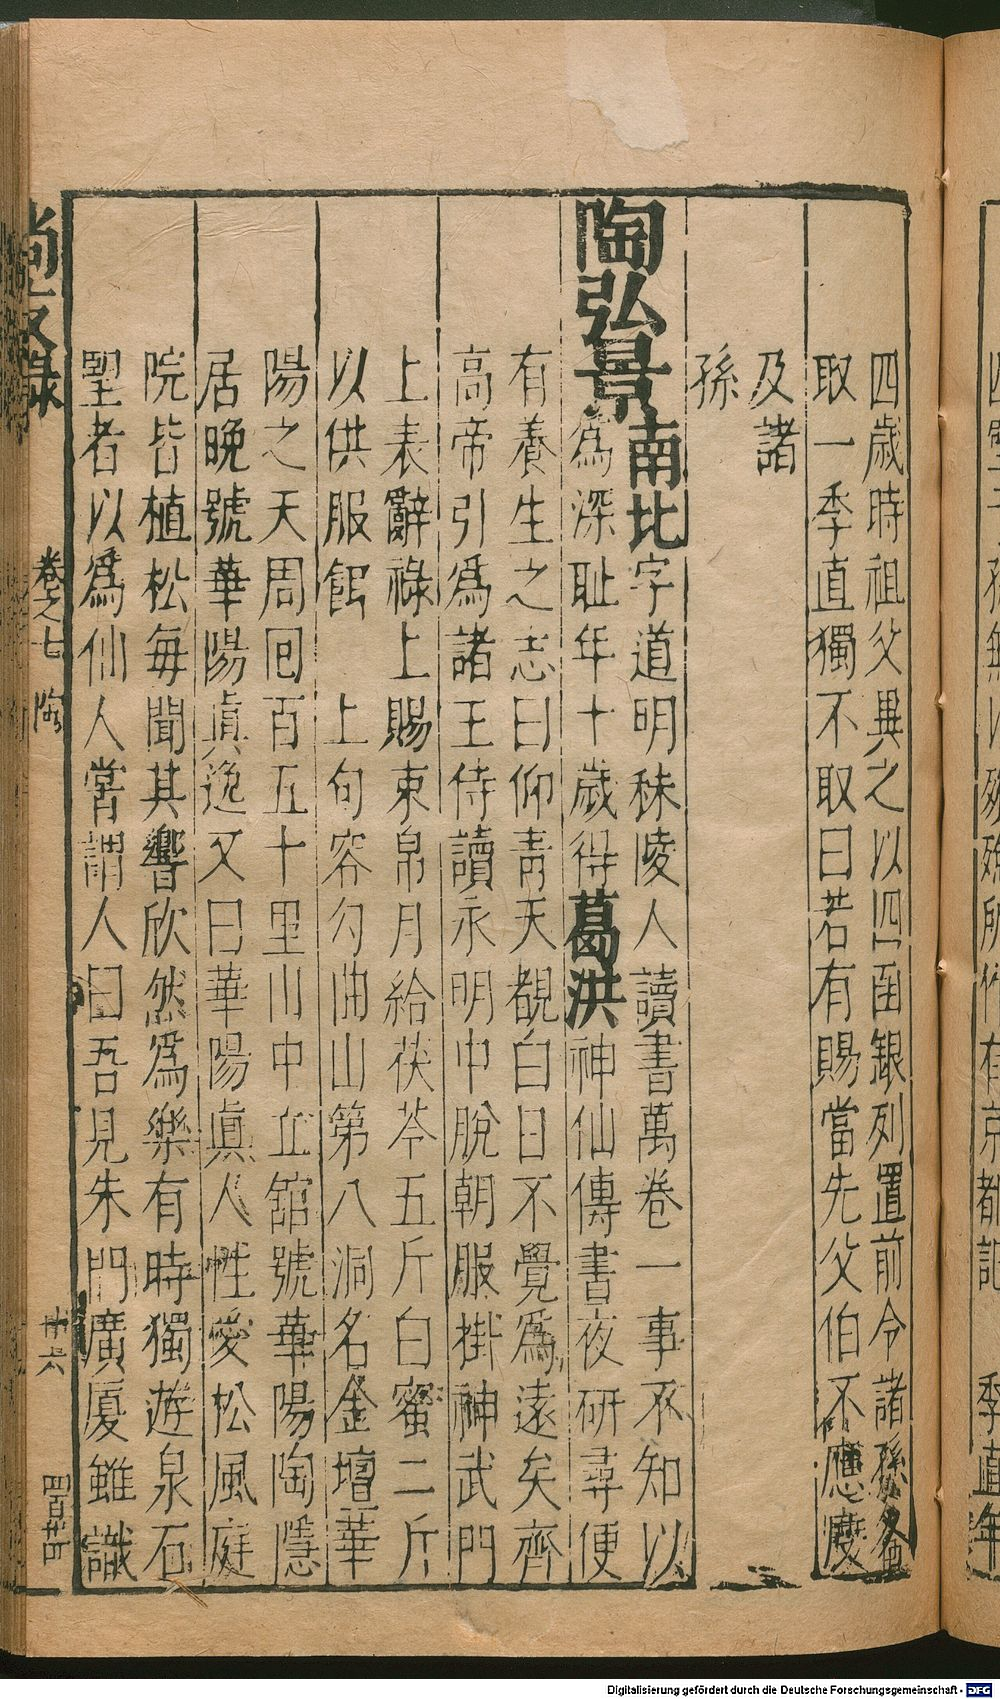 四歲時祖父異之以四函銀列置前令諸孫各
取一季直獨不取曰若有賜當先父伯不應度
及諸
孫
陶弘景南北字道明秣陵人讀書萬卷一事不知以
為深耻年十歲得葛洪神仙傳晝夜研尋便
有養生之志曰仰青天覩白日不覺爲遠矣齊
高帝引爲諸王侍讀永明中脫朝服掛神武門
上表辭祿上賜束帛月給茯苓五斤白蜜二斤
以供服餌 上句容勾曲山第八洞名金壇華
陽之天周囘百五十里川中立舘號華陽陶隱
居晚號華陽眞逸又曰華陽眞人性愛松風庭
院皆植松每聞其響欣然爲樂有時獨遊泉石
望者以爲仙人嘗謂人曰吾見朱門廣厦雖識
尚友錄 卷之七 陶 十六
季直年
Digitalisierung gefördert durch die Deutsche Forschungsgemeinschaft - DFG